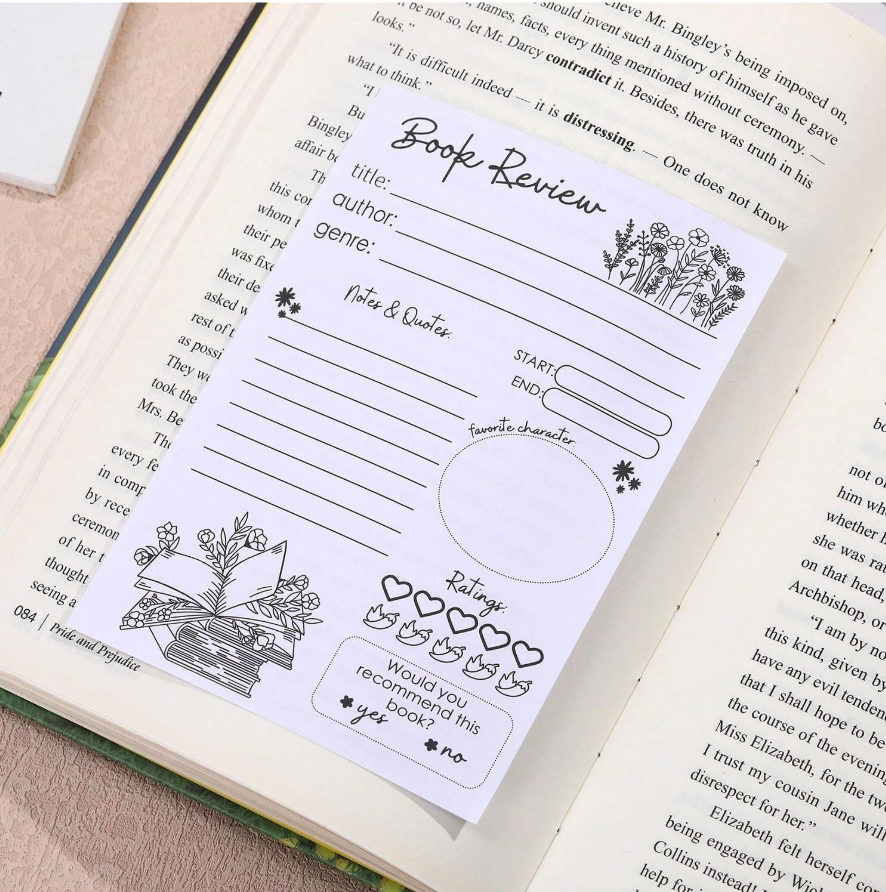 ieve Mr. Bingley's being imposed on,
should invent such a history of himself as he gave
, names, facts, every thing mentioned without ceremony. —
it be not so, let Mr. Darcy contradict it. Besides, there was truth in his
looks."
"It is difficult indeed — it is distressing. — One does not know
what to think."
"I
Bu
Bingley
affair be
Th
this con
whom
their pe
was fixe
their de
asked w
rest of t
as possi
They we
took the
Mrs. Be
The
every fe
in comp
by rece
ceremon
of her t
thought
seeing a
084 | Pride and Prejudice
Book Review
title:
author:
genre:
Notes & Quotes:
START:
END:
favorite character:
Ratings:
Would you
recommend this
book?
yes
no
bo
not of
him wh
whether h
she was rat
on that head,
Archbishop, or
"I am by no
this kind, given by
have any evil tenden
that I shall hope to be
the course of the evening
Miss Elizabeth, for the two
I trust my cousin Jane will
disrespect for her."
Elizabeth felt herself co
being engaged by Wick
Collins instead!
help for